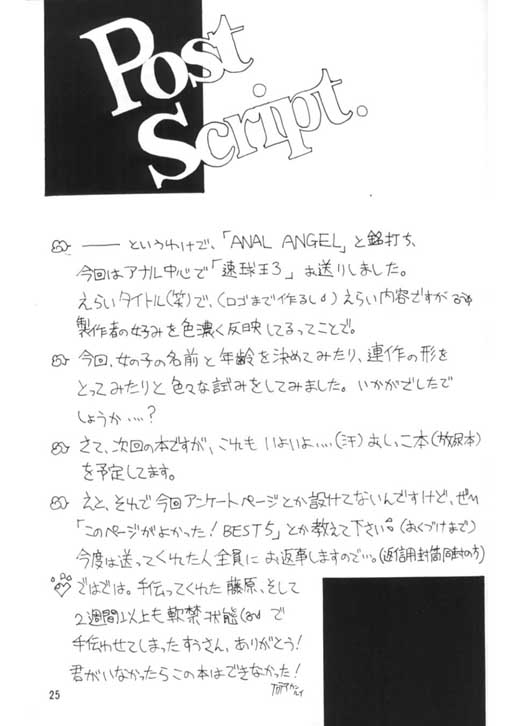 Post
Script.
―― というわけで、「ANAL ANGEL」と銘打ち、
今回はアナル中心で「速球王3」お送りしました。
えらいタイトル(笑)で、(ロゴまで作るし)えらい内容ですが
製作者の好みを色濃く反映してるってことで。
今回、女の子の名前と年齢を決めてみたり、連作の形を
とってみたりと色々な試みをしてみました。いかがでしたで
しょうか・・・・?
さて、次回の本ですが、これも いよいよ・・・・(汗)おしっこ本(放尿本)
を予定してます。
えと、それで今回アンケートページとか設けてないんですけど、ぜひ
「このページがよかった!BEST5」とか教えて下さい。(おくづけまで)
今度は送ってくれた人全員にお返事しますので…。(返信用封筒同封の方)
ではでは。手伝ってくれた藤原、そして
2週間以上も軟禁状態 で
手伝わせてしまったすうさん、ありがとう!
君がいなかったらこの本はできなかった!
25